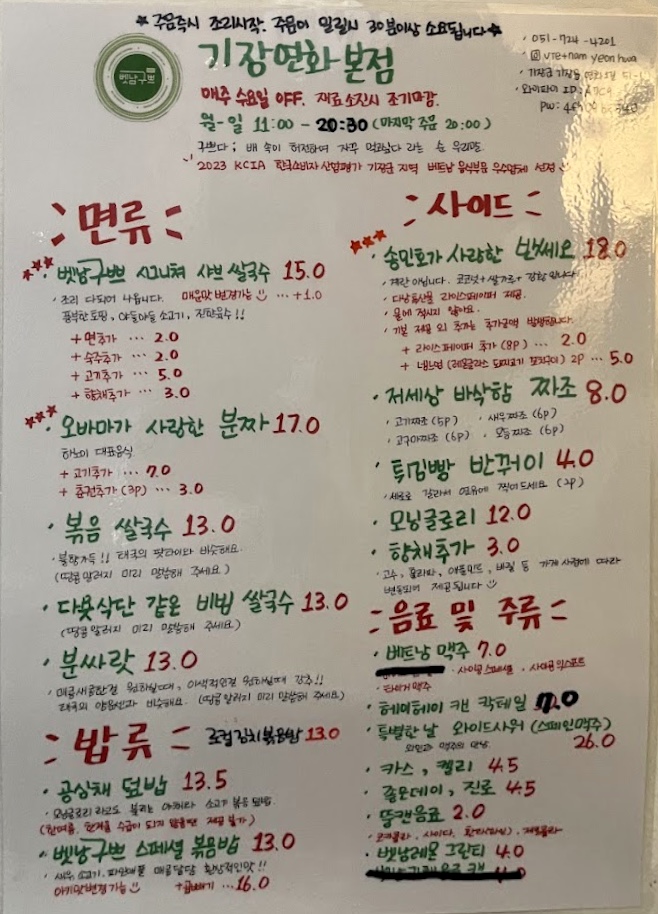 ★ 주문즉시 조리시작. 주문이 밀릴시 30분이상 소요됩니다 ★
벳남구쁘
기장연화 본점
· 051-724-4201
매주 수요일 OFF. 재료소진시 조기마감.
월-일 11:00 - 20:30 (마지막 주문 20:00)
구쁘다 ; 배 속이 허전하여 자꾸 먹고싶다 라는 순 우리말.
2023 KCIA 한국소비자산업평가 기장군 지역 베트남 음식부문 우수업체 선정
면류
· 벳남구쁘 시그니쳐 샤브 쌀국수 15.0
· 조리 다되어 나옵니다. 매운맛 변경가능 ... +1.0
풍부한 토핑, 야들야들 소고기, 진한육수!!
+ 면추가 ... 2.0
+ 숙주추가 ... 2.0
+ 고기추가 ... 5.0
+ 향채추가 ... 3.0
· 오바마가 사랑한 분짜 17.0
하노이 대표음식
+ 고기추가 ... 7.0
+ 춘권추가 (3p) ... 3.0
· 볶음 쌀국수 13.0
· 불향가득!! 태국의 팟타이와 비슷해요.
(땅콩알러지 미리 말씀해 주세요.)
· 다욧식단 같은 비빔 쌀국수 13.0
(땅콩알러지 미리 말씀해 주세요.)
· 분싸랏 13.0
· 매콤새콤한걸 원하실때, 이색적인걸 원하실때 강추!!
태국의 얌운센과 비슷해요. (땅콩알러지 미리 말씀해 주세요)
밥류
로컬김치볶음밥 13.0
· 공심채 덮밥 13.5
· 모닝글로리 라고도 불리는 야채와 소고기 볶음 덮밥.
· 벳남구쁘 스페셜 볶음밥 13.0
· 새우, 소고기, 파인애플 매콤달달 환상적인맛!!
아기맛변경가능 +곱빼기 ... 16.0
사이드
· 송민호가 사랑한 반쎄오 18.0
· 계란 아닙니다. 코코넛+쌀가루+강황 입니다.
· 다낭특산물 라이스페이퍼 제공.
· 물에 적시지 않아요.
· 기본 제공 외 추가는 추가금액 발생합니다.
+ 라이스페이퍼 추가 (8p) ... 2.0
+ 넴느엉 (레몬글라스 돼지고기 꼬지구이) 2p ... 5.0
· 저세상 바삭함 짜조 8.0
· 고기짜조 (5p) · 새우짜조 (6p)
· 고구마짜조 (6p) · 모듬짜조 (6p)
· 튀김빵 반꿔이 4.0
· 세로로 갈라서 연유에 찍어드세요 (2p)
· 모닝글로리 12.0
· 향채추가 3.0
· 고수, 애플민트, 바질 등 가게사정에 따라
변동되어 제공됩니다
음료 및 주류
· 베트남 맥주 7.0
· 사이공스페셜 · 사이공엑스포트
· 타이거맥주
· 헤이헤이 캔 칵테일 7.0
· 특별한 날 와이드사워 (스페인맥주)
와인과 맥주의 만남 26.0
· 카스, 켈리 4.5
· 좋은데이, 진로 4.5
· 뚱캔음료 2.0
· 벳남레몬 그린티 4.0